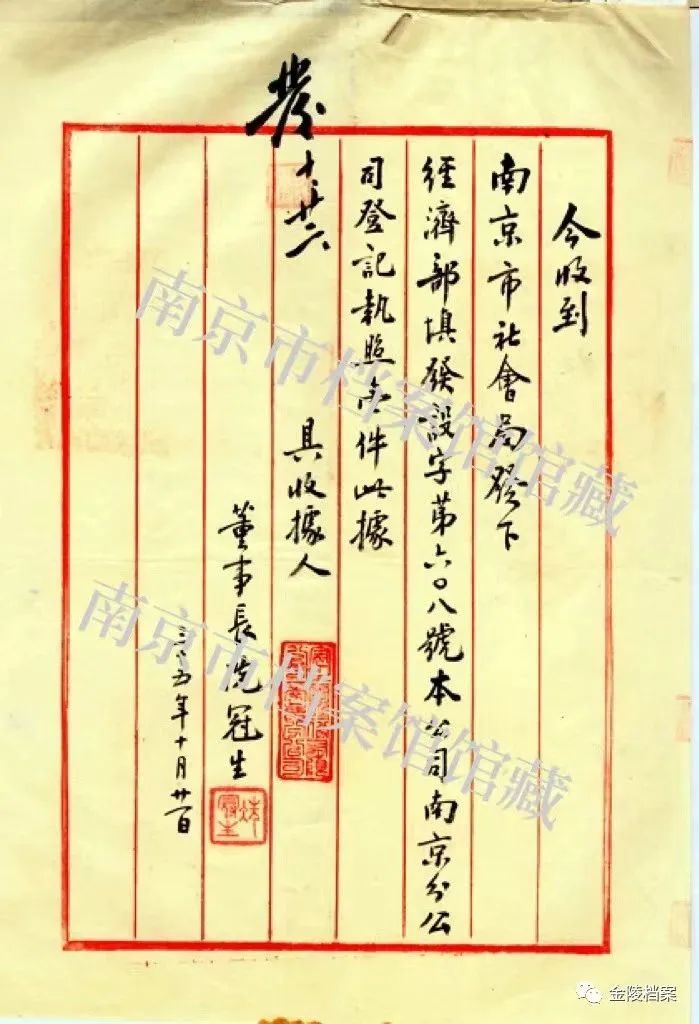 今收到
南京市社會局發下
經濟部填發設字第六〇八號本公司南京分公
司登記執照壹件此據
具收據人
董事長冼冠生
三五年十月廿
十、廿六
南京市档案馆馆藏
南京市档案馆馆藏
金陵档案